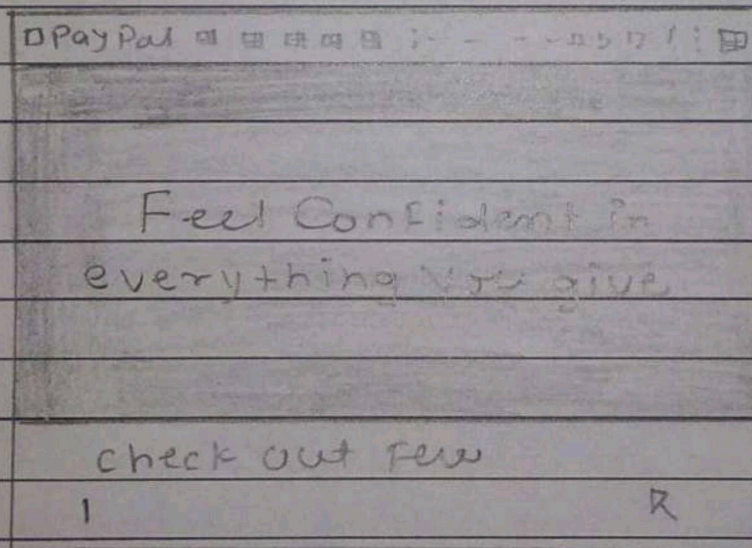 PayPal
Feel Confident in
everything you give
check out few
1 R